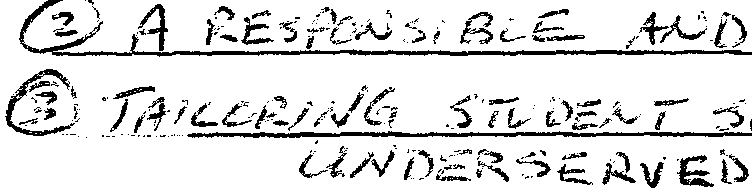 ② A RESPONSIBLE AND
③ TAILORING STUDENT S
UNDERSERVED